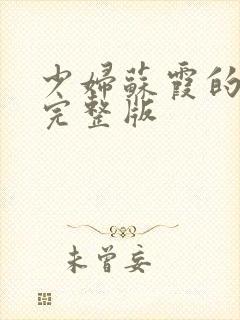 少婦蘇霞的
完整版
未曾妄